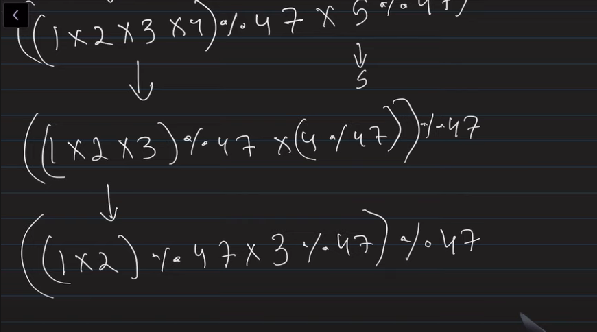 ((1×2×3×4)%47 × 5 %47)
5
((1×2×3)%47 ×(4%47))%47
((1×2)%47×3%47)%47